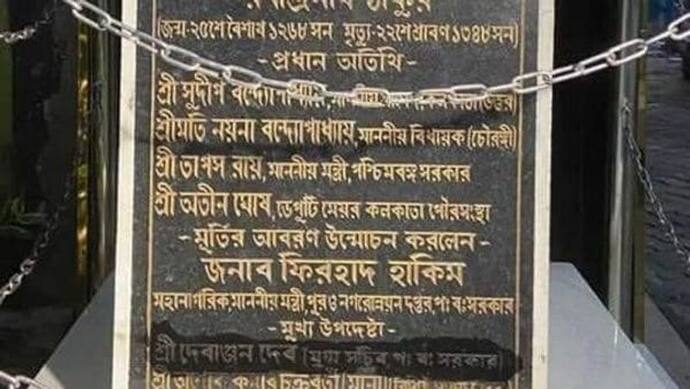 রবীন্দ্রনাথ ঠাকুর
(জন্ম-২৫শে বৈশাখ ১২৬৮ সন মৃত্যু-২২শে শ্রাবণ ১৩৪৮ সন)
-প্রধান অতিথি-
শ্রী সুদীপ বন্দ্যোপাধ্যায়,
শ্রীমতি নয়না বন্দ্যোপাধ্যায়, মাননীয় বিধায়ক (চৌরঙ্গী)
শ্রী তাপস রায়, মাননীয় মন্ত্রী, পশ্চিমবঙ্গ সরকার
শ্রী অতীন ঘোষ, ডেপুটি মেয়র কলকাতা পৌরসংস্থা
-মূর্তির আবরণ উন্মোচন করলেন-
জনাব ফিরহাদ হাকিম
মহানাগরিক, মাননীয় মন্ত্রী, পুর ও নগরোন্নয়ন দপ্তর, পঃ বঃ সরকার
-মুখ্য উপদেষ্টা-
শ্রী দেবাঞ্জন দেব (মুখ্য সচিব, পঃ বঃ সরকার)
শ্রী